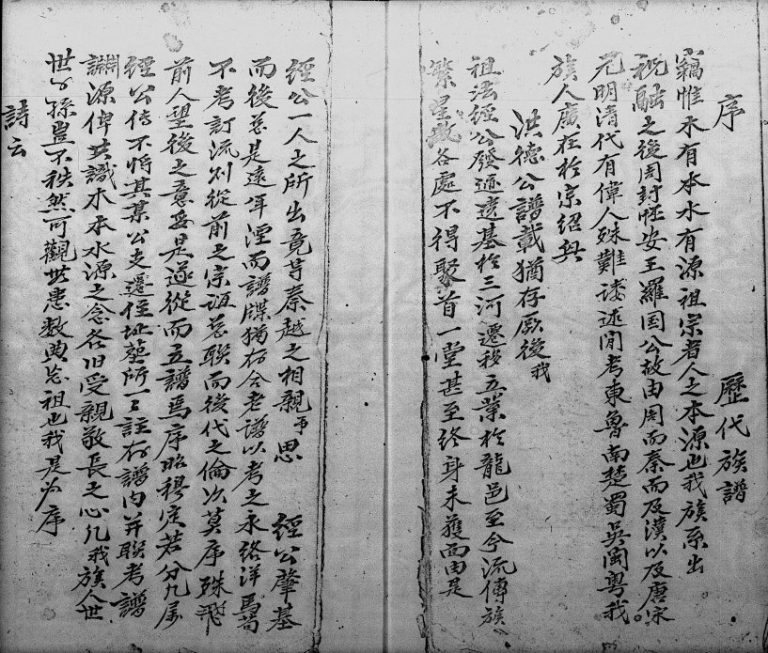 序　歷代族譜
竊惟木有本水有源祖宗者人之本源也我族系出
祝融之後周封怪安王羅国公故由周而秦而及漢以及唐宋
元明清代有偉人殊難讀述閒考東魯南楚蜀吳閩粵我
族人廣在於宗紹興
洪德公譜載猶存厥後我
祖法經公發迹遠基於三河遷移立業於龍邑至今流傳族
繁星散各處不得聚首一堂甚至終身未獲面由是
經公一人之所出竟等秦越之相親乎思　經公肇基
而後若是遠年湮而譜牒猶存今老譜以考之永終洋焉苟
不考訂流別從前之宗誼忽聯而後代之倫次莫序殊飛
前人望後之意妥是遂從而立譜焉序昭穆定若分九屬
經公信不將其某公支遷徃址葬所一々註存譜內并聯考譜
淵源俾共識木本水源之念各旧受親敬長之心凡我族人世
世子孫豈不秩然可觀世患数典忘祖也我是為序
詩云